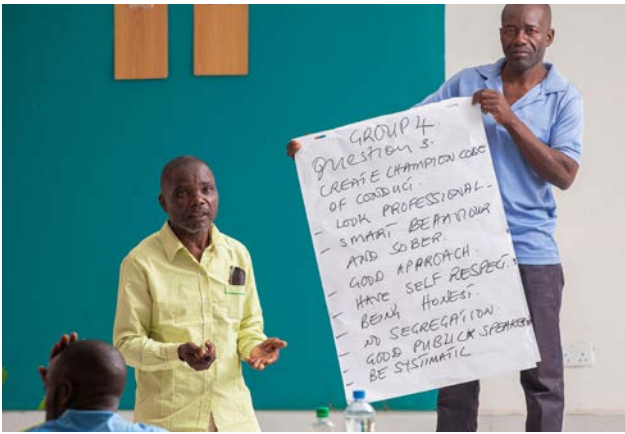 GROUP 4.
QUESTION 3.
CREATE CHAMPION CODE
OF CONDUCT.
- LOOK PROFESSIONAL.
- SMART BEHAVIOUR
AND SOBER.
- GOOD APPROACH.
- HAVE SELF RESPECT.
- BEING HONEST.
- NO SEGREGATION.
- GOOD PUBLICK SPEAKER
- BE SYSTIMATIC